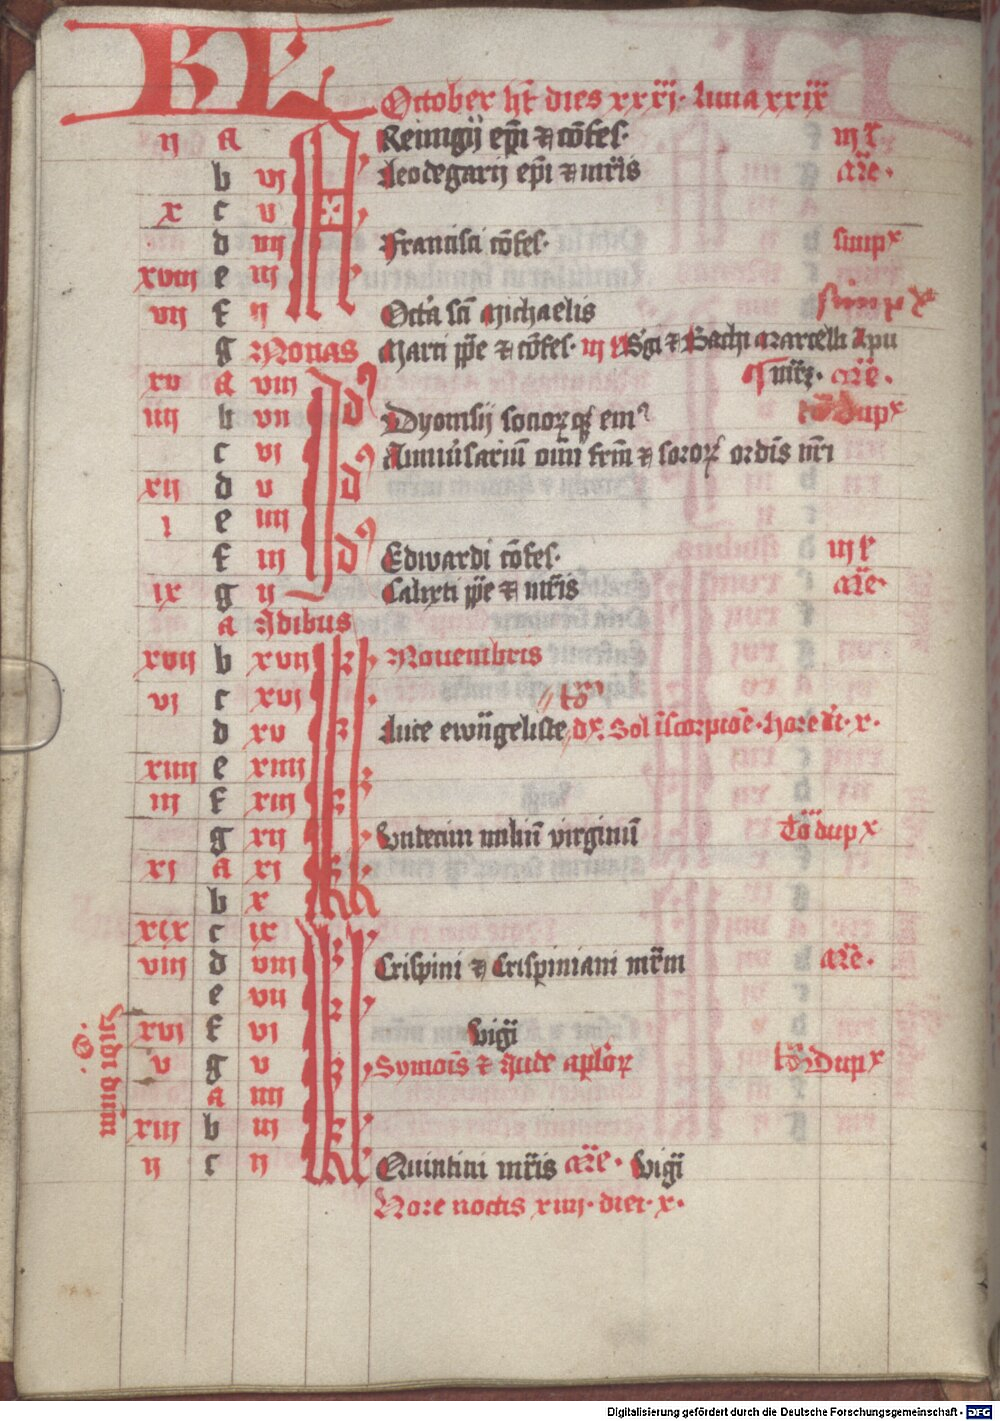 KL October ht dies xxxj. luna xxix
ij a Remigij epi & cofes. iij l
b vj Leodegarij epi & mris cōe.
x c v
d iiij Francisci cofes. simpx
xviij e iij
vij f ij Octa sci Michaelis simpx
g Nonas Marci ppe & cofes. iij l Sgi & Bachi Marcelli Apu
xv a viij mrz. cōe.
iiij b vij Dyonisij sociorqz eius to dupx
c vj Anniusariu oim frm & soror ordis nri
xij d v
i e iiij
f iij Edwardi cofes. iij l
ix g ij Calixti ppe & mris cōe.
a Idibus
xvij b xvij Nouembris
vj c xvj
d xv Luce ewangeliste dx. Sol i scorpioe. hore di. x.
xiiij e xiiij
iij f xiij
g xij Undecim miliu virginiu to dupx
xj a xj
b x
xix c ix
viij d viij Crispini & Crispiniani mrm cōe.
e vij
xvj f vj vigi
v g v Symois & Jude aplor to dupx
a iiij
xiij b iij
ij c ij Quintini mris cōe. vigi
Hore noctis xiiij. diei. x.
Digitalisierung gefördert durch die Deutsche Forschungsgemeinschaft - DFG